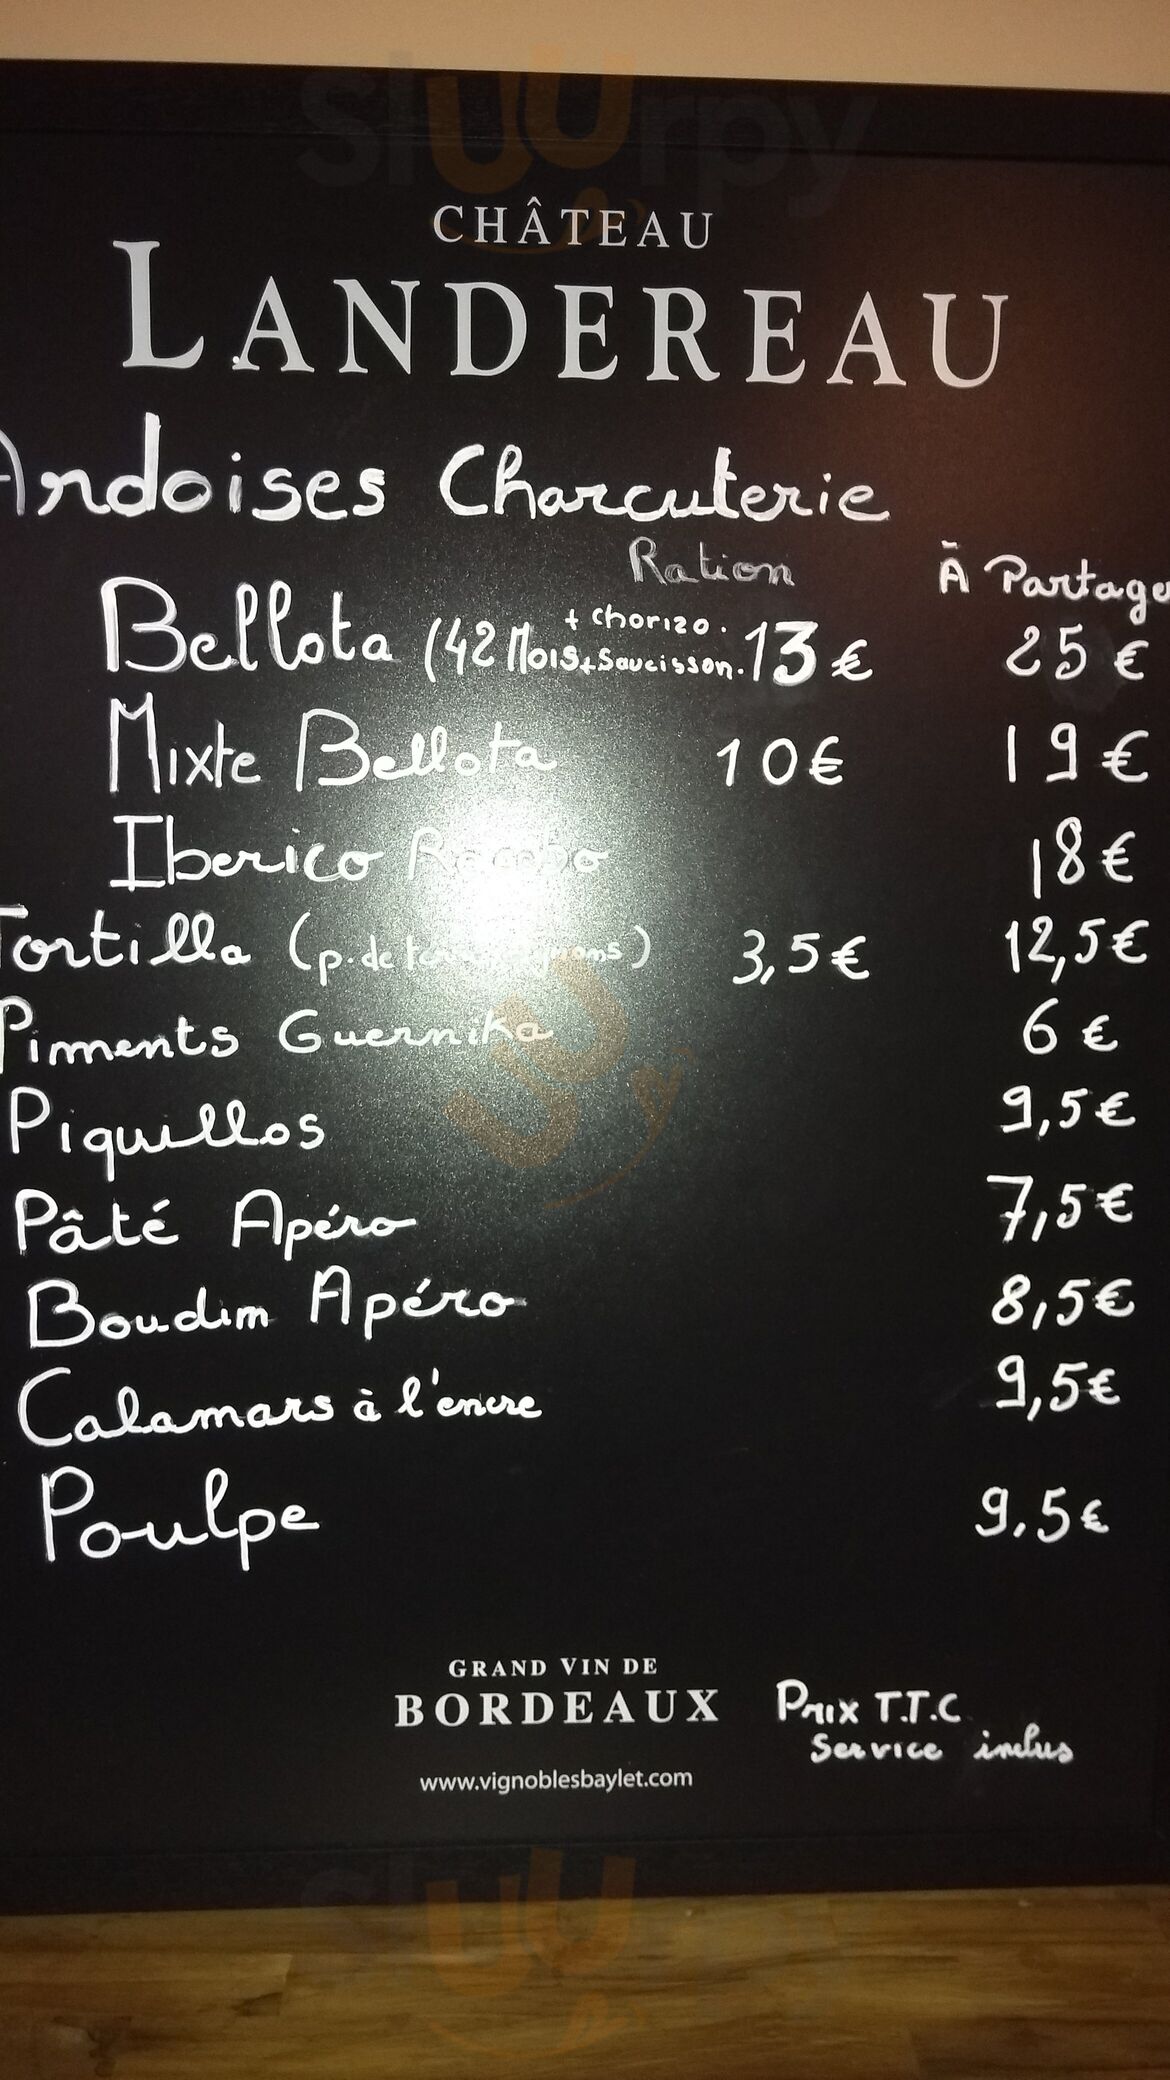 sluurpy
CHÂTEAU
LANDEREAU
Ardoises Charcuterie
Ration À Partage
Bellota (42 Mois + chorizo. + Saucisson. 13 € 25 €
Mixte Bellota 10€ 19€
Iberico 18€
Tortilla (p. de 3,5€ 12,5€
Piments Guernika 6€
Piquillos 9,5€
Pâté Apéro 7,5€
Boudin Apéro 8,5€
Calamars à l'encre 9,5€
Poulpe 9.5€
GRAND VIN DE
BORDEAUX
Prix T.T.C
Service inclus
www.vignoblesbaylet.com